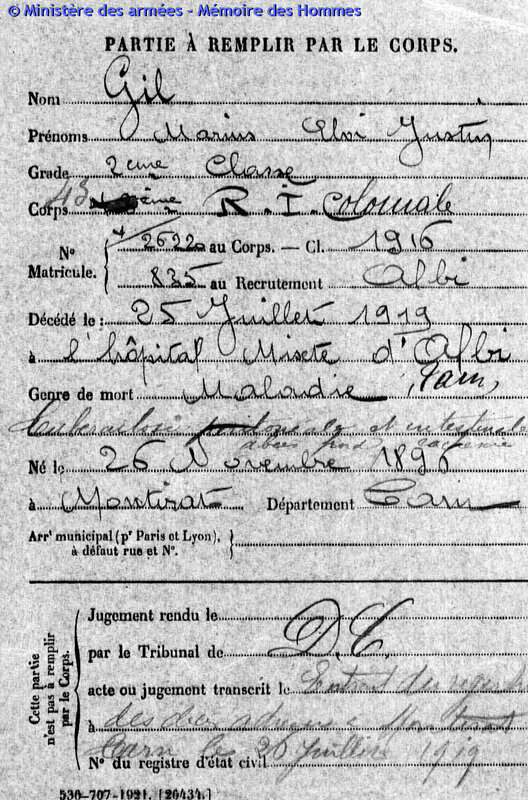 © Ministère des armées - Mémoire des Hommes
PARTIE À REMPLIR PAR LE CORPS.
Nom Gil
Prénoms Marius Eloi Justin
Grade 2ème Classe
Corps 43 ème R. I. Coloniale
N° Matricule. 2622 au Corps. — Cl. 1916
835 au Recrutement Albi
Décédé le : 25 Juillet 1919
à l'hôpital Mixte d'Albi
(Tarn)
Genre de mort Maladie
Tuberculose et intestinale
abcès
Né le 26 Novembre 1896
à Montirat Département Tarn
Arrt municipal (pr Paris et Lyon),
à défaut rue et N°.
Cette partie n'est pas à remplir par le Corps.
Jugement rendu le
par le Tribunal de D.C.
acte ou jugement transcrit le Extrait
à des
Tarn le Juillet 1919
N° du registre d'état civil
536-707-1921. [26434.]